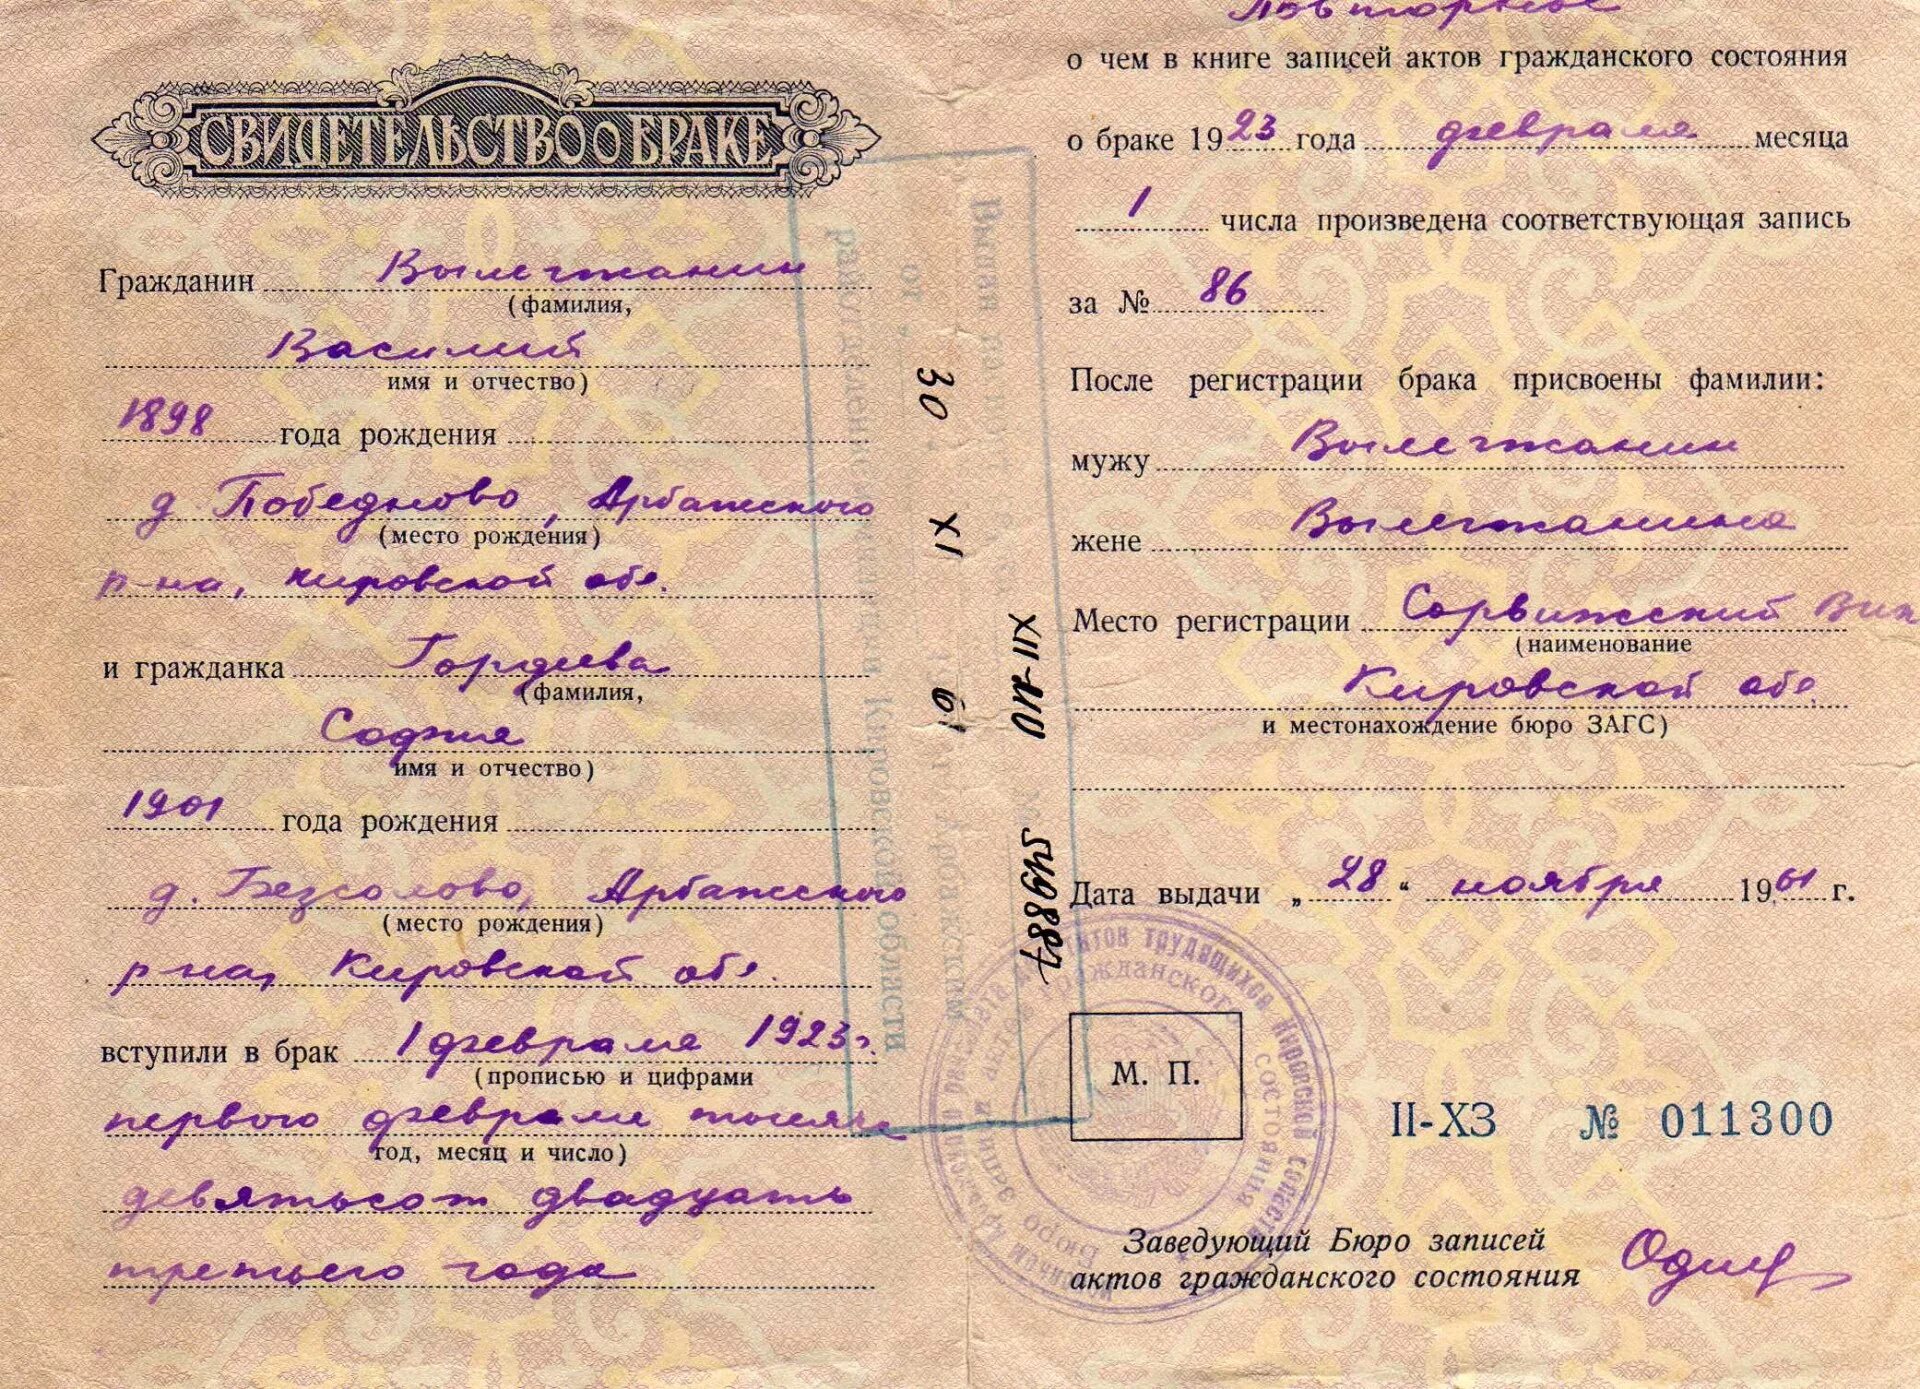 СВИДЕТЕЛЬСТВО о БРАКЕ
Гражданин Вылегжанин
(фамилия,
Василий
имя и отчество)
1898 года рождения
д. Победново, Арбажского
(место рождения)
р-на, Кировской обл.
и гражданка Гордеева
(фамилия,
София
имя и отчество)
1901 года рождения
д. Безсолово, Арбажского
(место рождения)
р-на, Кировской обл.
вступили в брак 1 февраля 1923г.
(прописью и цифрами
первого февраля тысяча
год, месяц и число)
девятьсот двадцать
третьего года
Повторное
о чем в книге записей актов гражданского состояния
о браке 1923 года февраля месяца
1 числа произведена соответствующая запись
за № 86
После регистрации брака присвоены фамилии:
мужу Вылегжанин
жене Вылегжанина
Место регистрации Сорвижский
(наименование
Кировской обл.
и местонахождение бюро ЗАГС)
Дата выдачи „28“ ноября 1961 г.
М. П.
II-ХЗ № 011300
Заведующий Бюро записей
актов гражданского состояния
Выдан
от „30“ XI 61
Кировской области
XII-МЮ
549887
депутатов трудящихся Кировской области
Бюро записи актов гражданского состояния